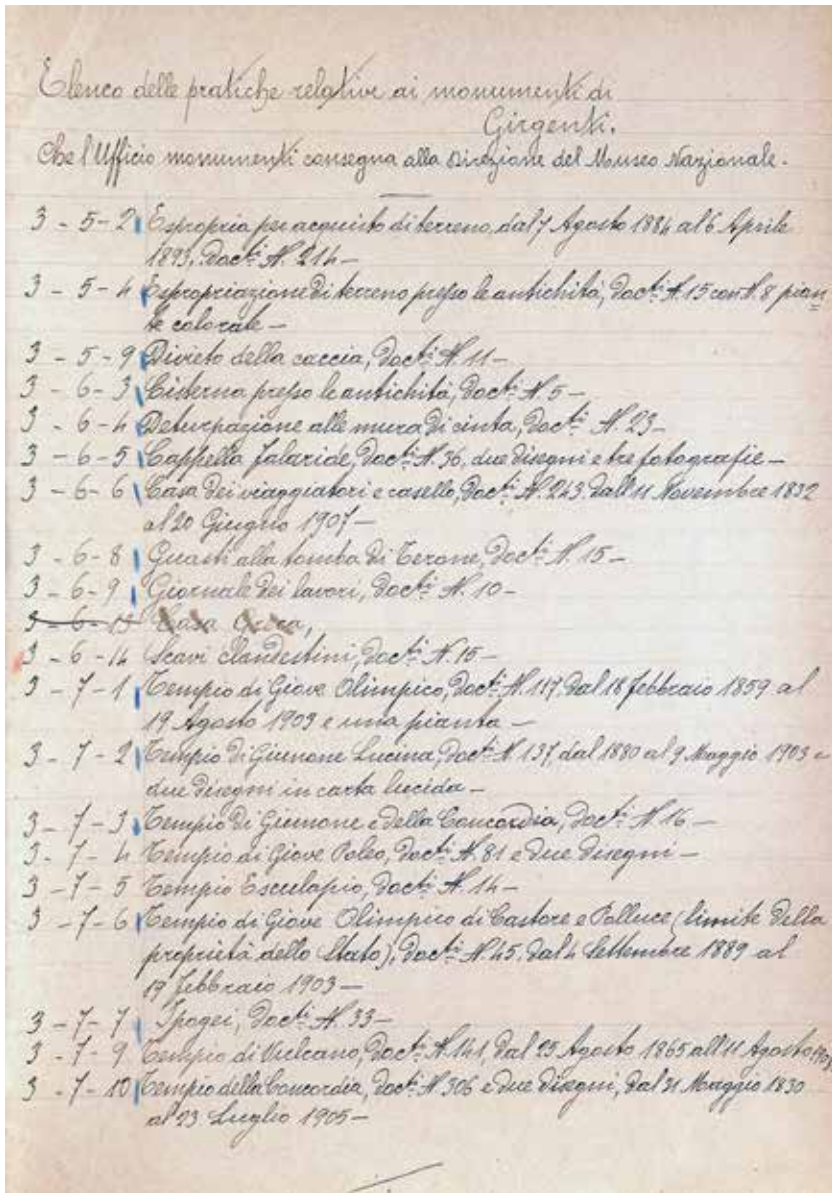 Elenco delle pratiche relative ai monumenti di
Girgenti.
Che l'Ufficio monumenti consegna alla Direzione del Museo Nazionale.
3 - 5 - 2 Espropria per acquisto di terreno, dal 7 Agosto 1884 al 6 Aprile
1893, Doct.i N. 214 -
3 - 5 - 4 Espropriazione di terreno presso le antichità, Doct.i N. 15 con N. 8 pian=
te colorate -
3 - 5 - 9 Divieto della caccia, Doct.i N. 11 -
3 - 6 - 3 Cisterna presso le antichità, Doct.i N. 5 -
3 - 6 - 4 Deturpazione alle mura di cinta, Doct.i N. 23 -
3 - 6 - 5 Cappella Falaride, Doct.i N. 36, due disegni e tre fotografie -
3 - 6 - 6 Casa dei viaggiatori e casello, Doct.i N. 243, dall'11 Novembre 1832
al 20 Giugno 1907 -
3 - 6 - 8 Guasti alla tomba di Terone, Doct.i N. 15 -
3 - 6 - 9 Giornale dei lavori, Doct.i N. 10 -
3 - 6 - 13 Casa Greca,
3 - 6 - 14 Scavi clandestini, Doct.i N. 15 -
3 - 7 - 1 Tempio di Giove Olimpico, Doct.i N. 117, dal 18 febbraio 1859 al
19 Agosto 1903 e una pianta -
3 - 7 - 2 Tempio di Giunone Lucina, Doct.i N. 137, dal 1880 al 9 Maggio 1903 e
due disegni in carta lucida -
3 - 7 - 3 Tempio di Giunone e della Concordia, Doct.i N. 16 -
3 - 7 - 4 Tempio di Giove Poleo, Doct.i N. 81 e due disegni -
3 - 7 - 5 Tempio Esculapio, Doct.i N. 14 -
3 - 7 - 6 Tempio di Giove Olimpico di Castore e Polluce (limite della
proprietà dello Stato), Doct.i N. 45, dal 4 Settembre 1889 al
19 febbraio 1903 -
3 - 7 - 7 Ipogei, Doct.i N. 33 -
3 - 7 - 9 Tempio di Vulcano, Doct.i N. 141, dal 25 Agosto 1865 all'11 Agosto
3 - 7 - 10 Tempio della Concordia, Doct.i N. 306 e due disegni, dal 31 Maggio 1830
al 23 Luglio 1905 -